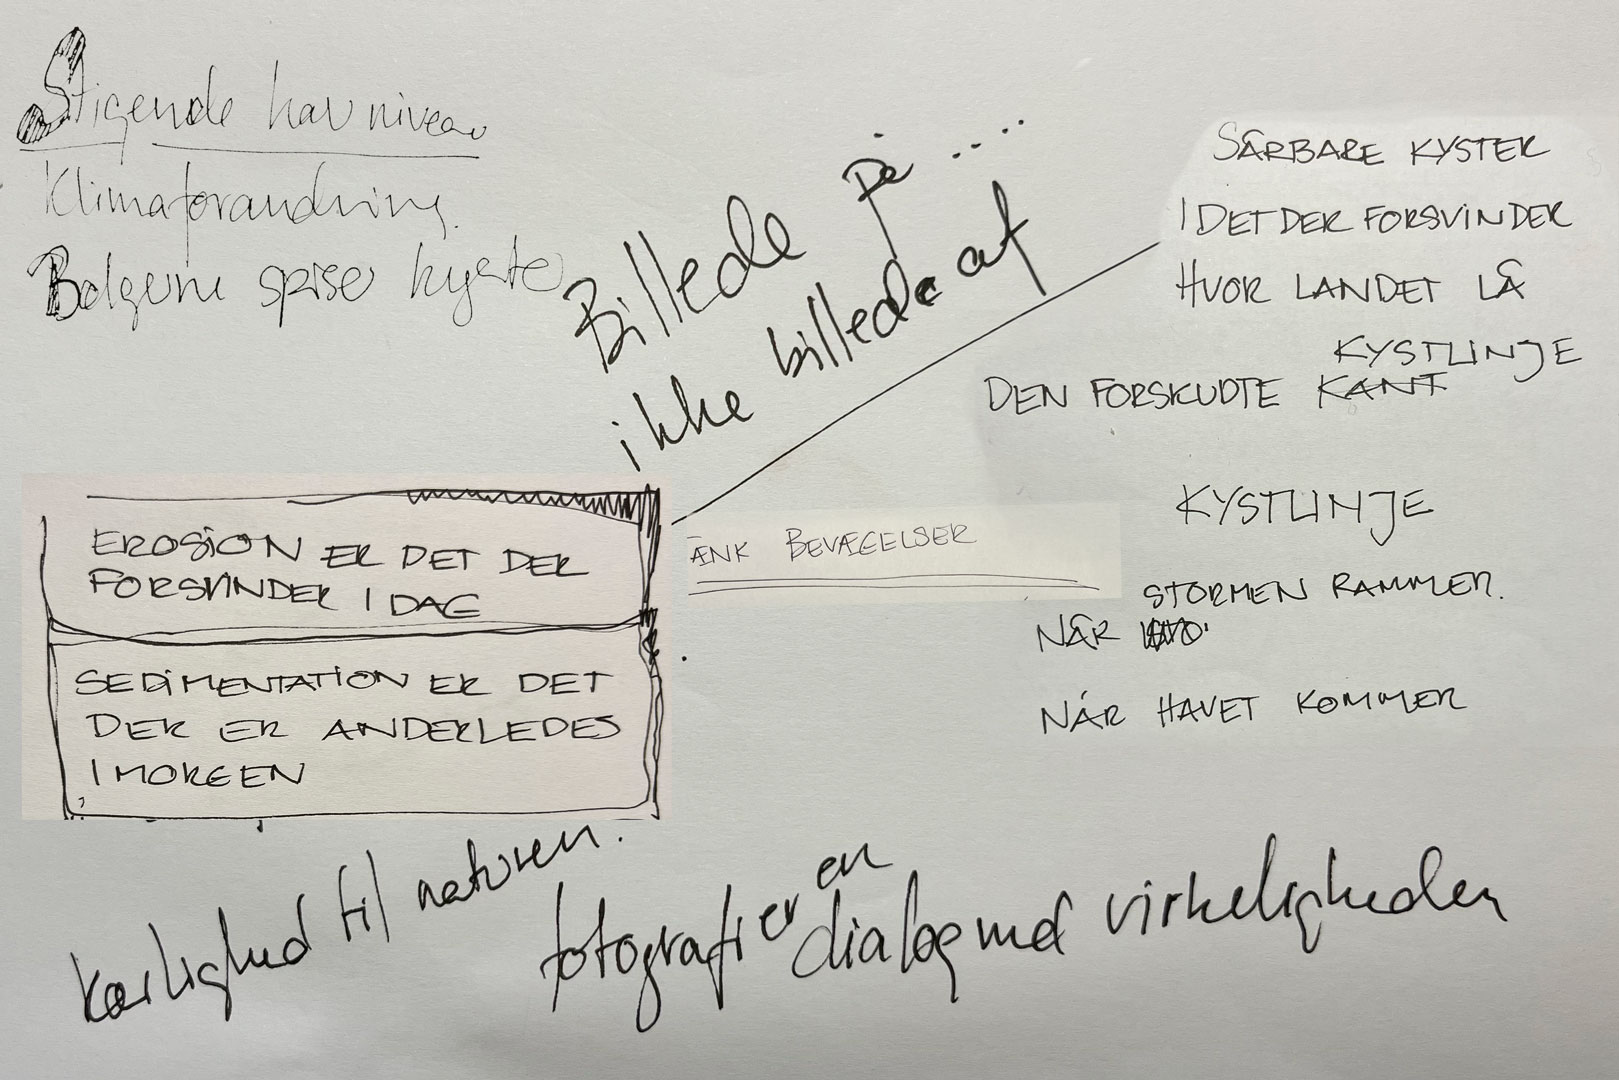 Stigende hav niveau
Klimaforandring.
Bølgerne spiser kyste
Billede på .....
ikke billede af
SÅRBARE KYSTER
I DET DER FORSVINDER
HVOR LANDET LÅ
KYSTLINJE
DEN FORSKUDTE KANT
KYSTLINJE
EROSION ER DET DER
FORSVINDER I DAG
ÆNK BEVÆGELSER
STORMEN RAMMER.
NÅR
SEDIMENTATION ER DET
DER ER ANDERLEDES
I MORGEN
NÅR HAVET KOMMER
kærlighed til naturen.
fotografi er en
dialog med virkeligheden